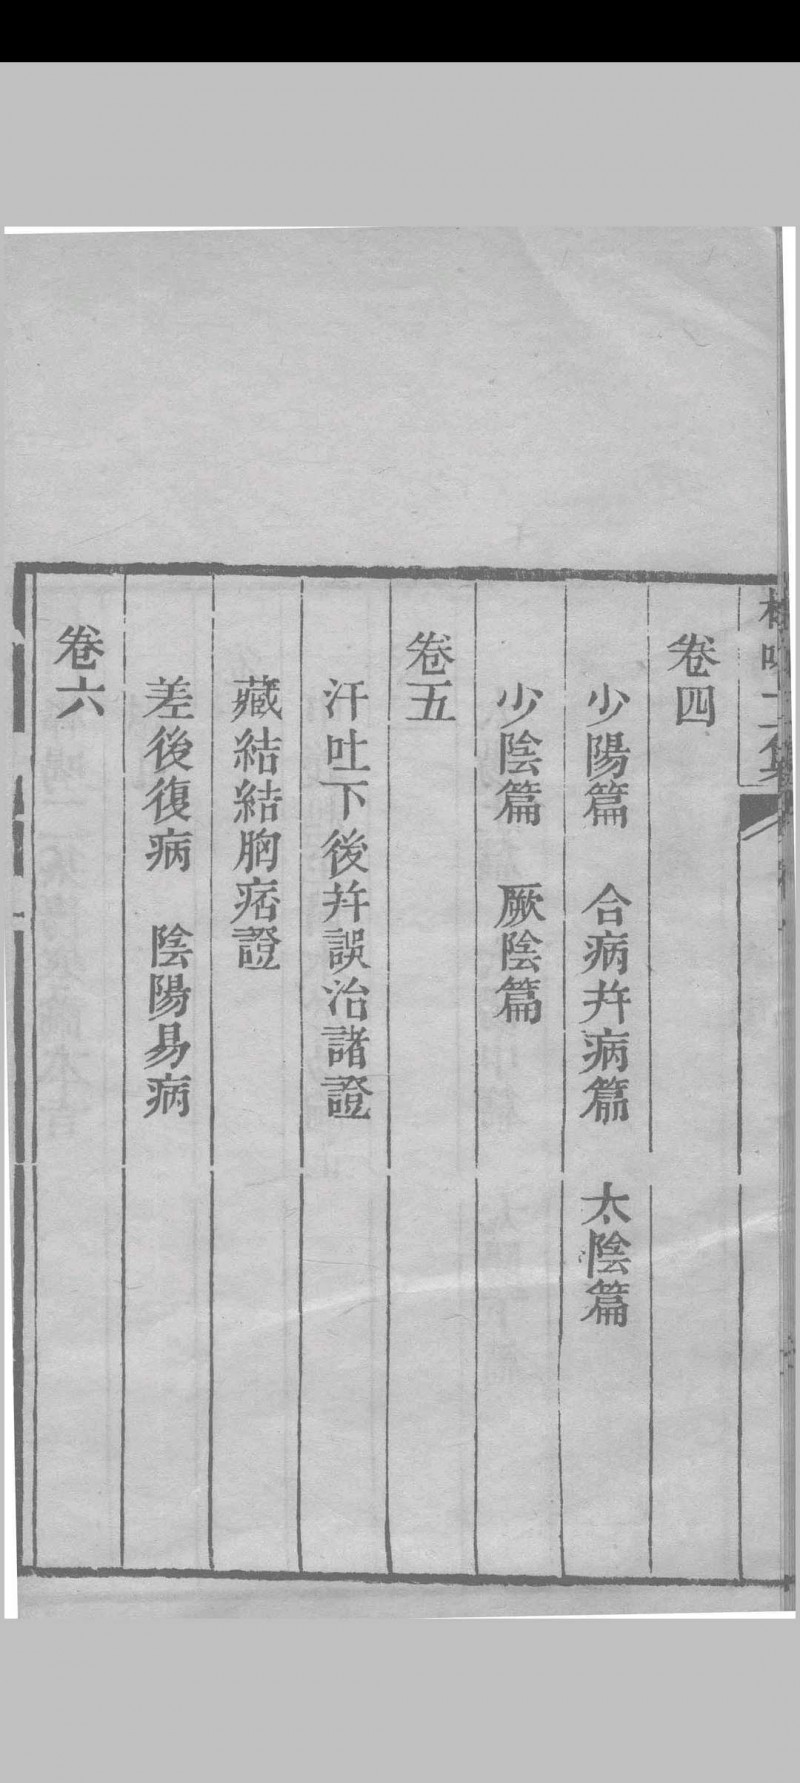 卷四
少陽篇　合病幷病篇　太陰篇
少陰篇　厥陰篇
卷五
汗吐下後幷誤治諸證
藏結結胸痞證
差後復病　陰陽易病
卷六